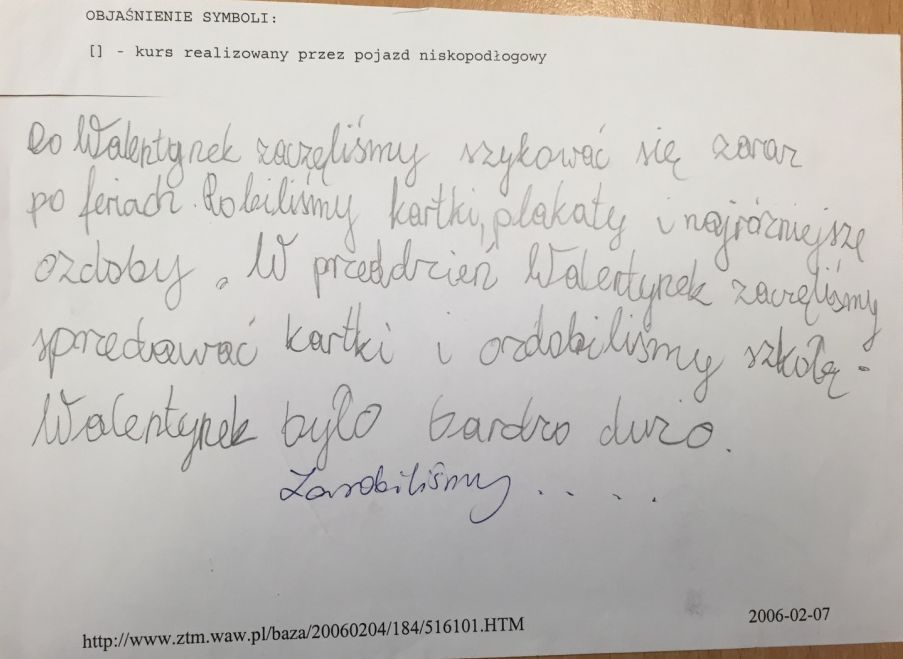 OBJAŚNIENIE SYMBOLI:
[] - kurs realizowany przez pojazd niskopodłogowy
Do Walentynek zaczęliśmy szykować się zaraz
po feriach. Robiliśmy kartki, plakaty i najróżniejsze
ozdoby. W przeddzień Walentynek zaczęliśmy
sprzedawać kartki i ozdobiliśmy szkołę.
Walentynek było bardzo dużo.
Zarobiliśmy . . . .
http://www.ztm.waw.pl/baza/20060204/184/516101.HTM
2006-02-07